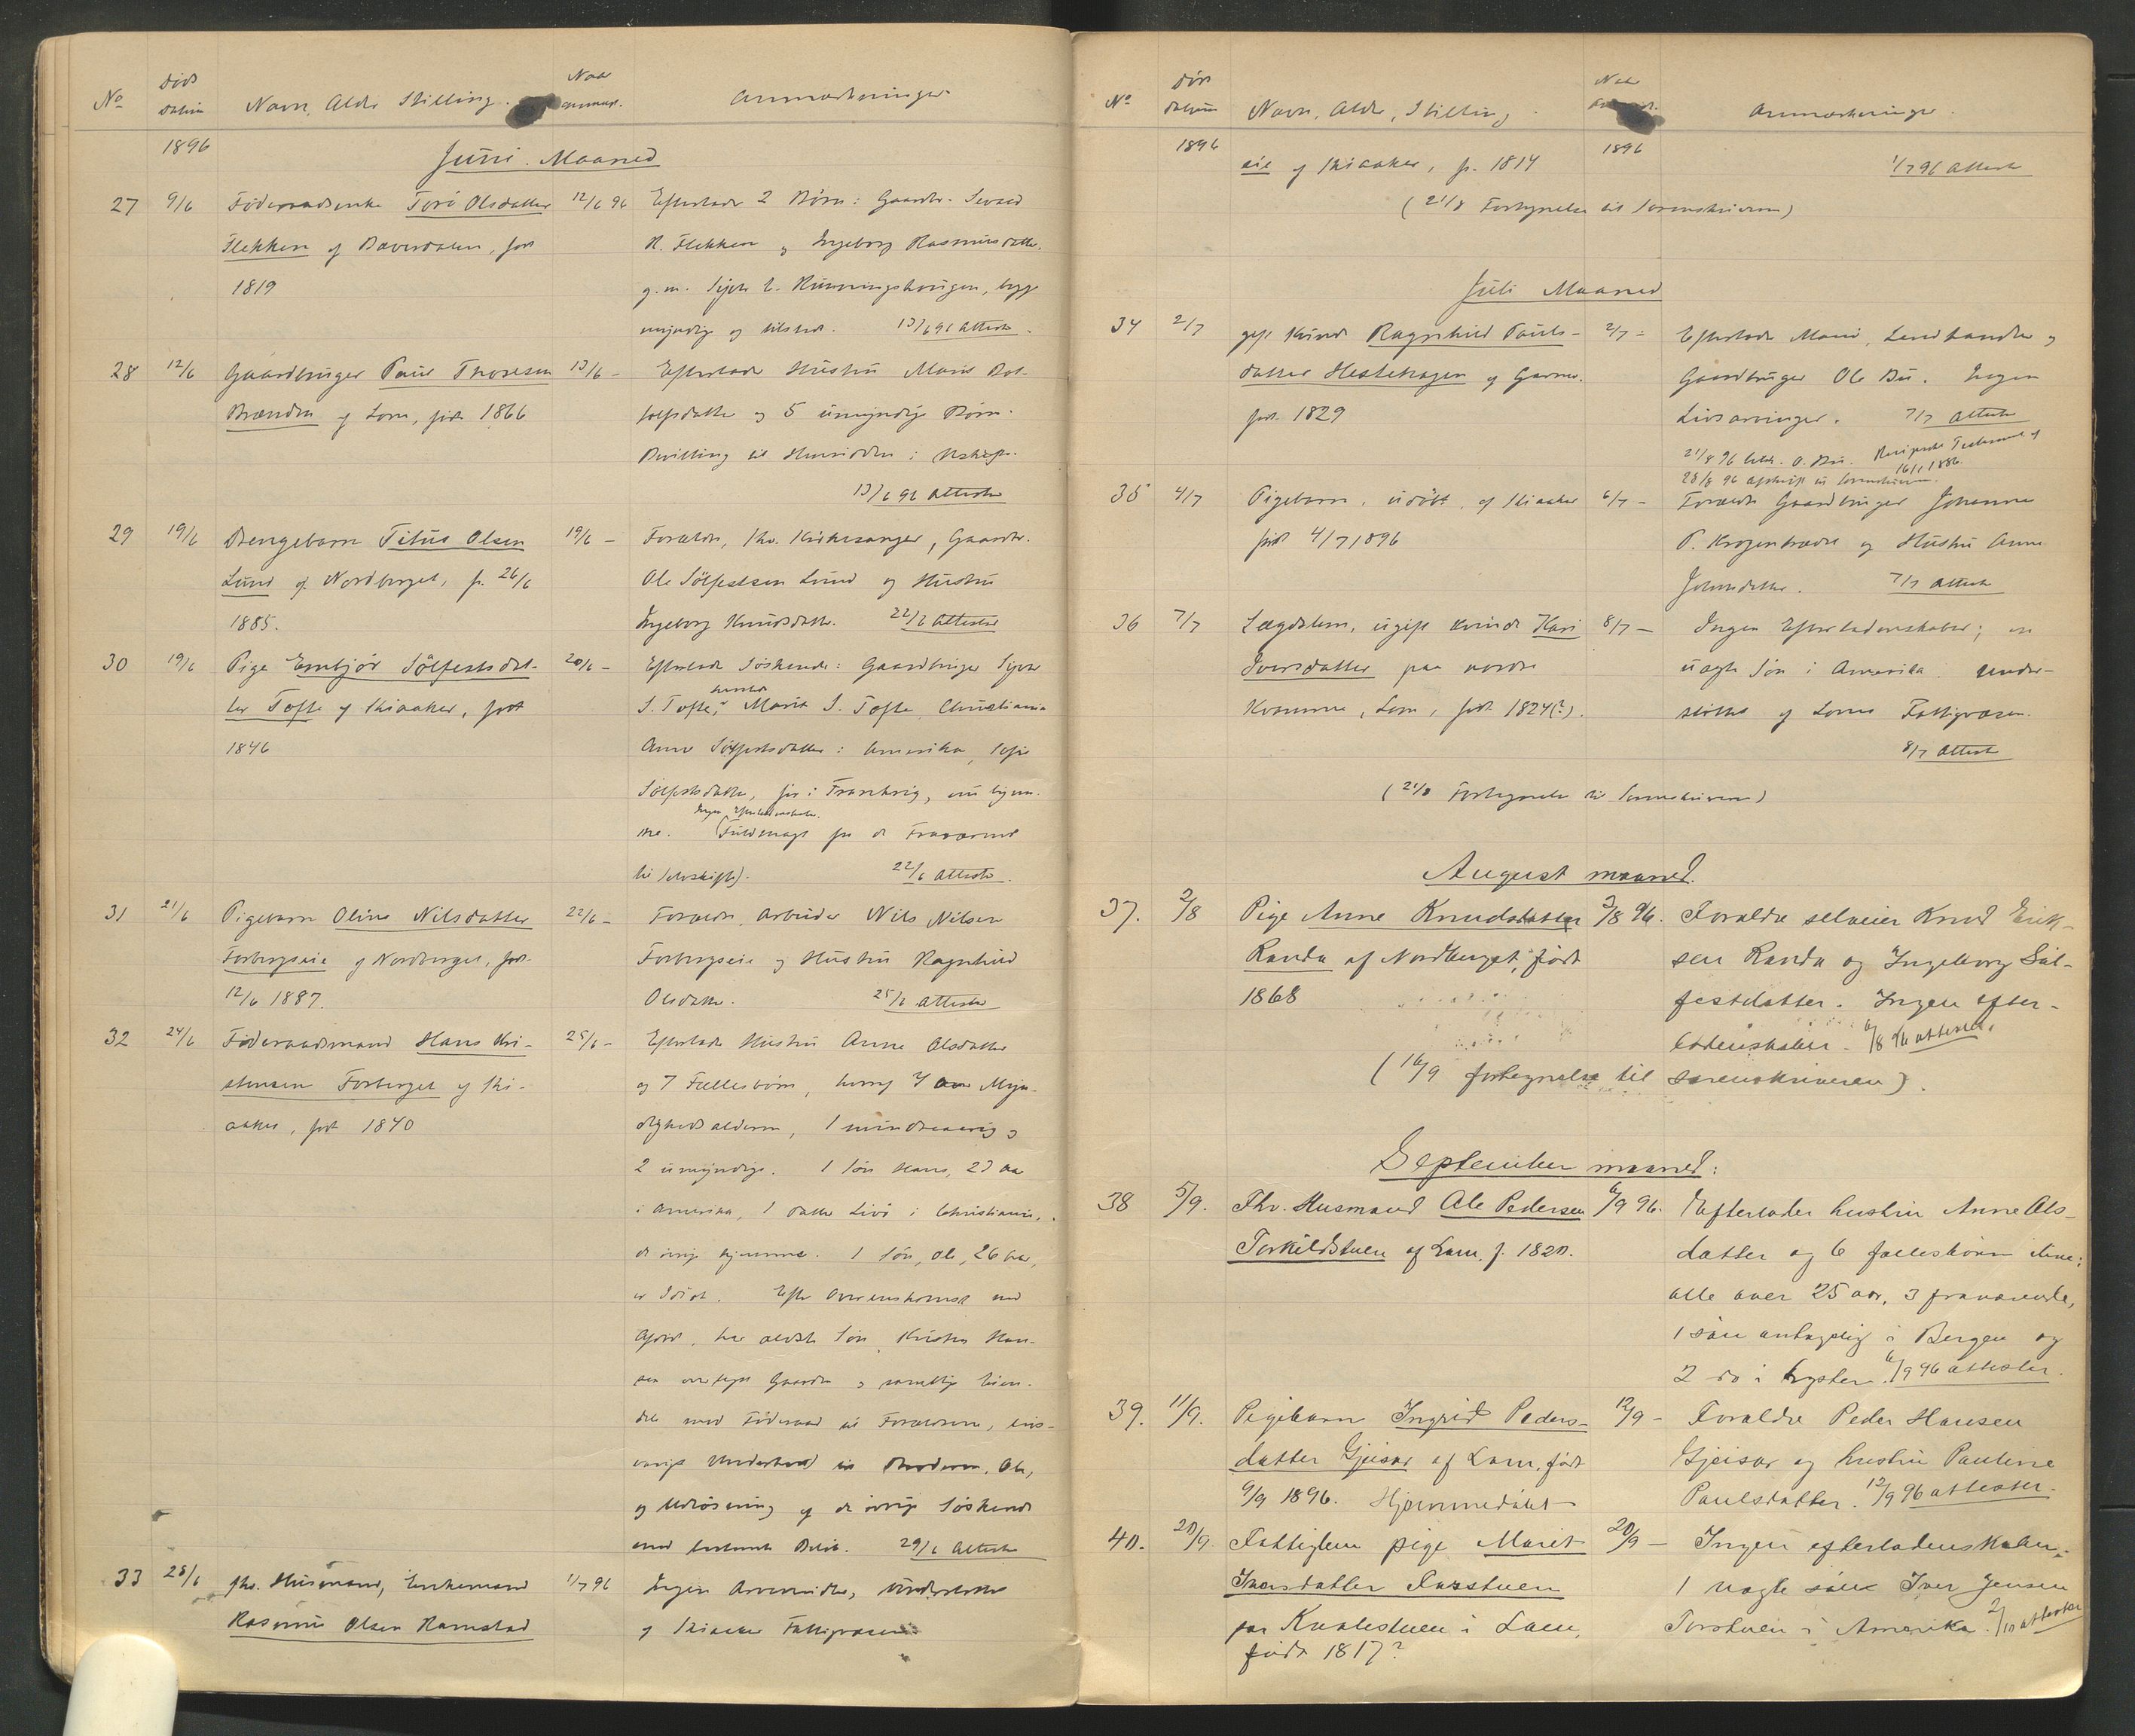 No Døds Datum Navn, Alder Stilling Naar anmeldt. Anmærkninger
1896
Juni Maaned
27 9/6 Føderaadsenke Torø Olsdatter 12/6 96 Efterlader 2 Børn: Gaardbr. Sevald
Flekken af Bæverdalen, født R. Flekken og Ingeborg Rasmusdatter
1819 g. m. Sjur
myndige og tilstede. 13/6 96 Attest
28 12/6 Gaardbruger Paul Thoresen 13/6 - Efterlader Hustru Marit
Brænden af Lom, født 1866 og 5 umyndige Børn.
Bevilling til Hensidden i Uskifte.
13/6 96 Attest
29 19/6 Drengebarn Titus Olsen 19/6 - Forældre, Kirkesanger, Gaardbr.
Lund af Nordberget, f. 26/6 Ole Sølfestsen Lund og Hustru
1885. Ingeborg Knudsdatter. 22/6 Attest
30 19/6 Pige Embjør Sølfestsdat- 20/6 - Efterlader Søskende: Gaardbruger Sjur
ter Tofte af Skiaker, født S. Tofte, Marit S. Tofte Christiania
1846 Anne Sølfestsdatter i Amerika,
Sølfestsdatter, før i Frankrig, nu hjemme.
Ingen Efterladenskaber.
(Fuldmagt fra de Fraværende
til Selvskifte). 22/6 Attest.
31 21/6 Pigebarn Oline Nilsdatter 22/6 - Forældre Arbeider Nils Nilsen
Forbergseie af Nordberget, født Forbergseie og Hustru Ragnhild
12/6 1887. Olsdatter. 25/6 Attest
32 24/6 Føderaadsmand Hans Kri- 25/6 - Efterlader Hustru Anne Olsdatter
stensen Forberget af Ski- og 7 Fællesbørn, hvoraf 4 over Myn-
aaker, født 1840 dighedsalderen, 1 mindreaarig og
2 umyndige. 1 Søn Hans, 23 Aar
i Amerika, 1 Datter Livø i Christiania,
de øvrige hjemme. 1 Søn, Ole, 26 Aar,
er Idiot. Efter Overenskomst med
Afdøde, har ældste Søn, Kristen Han-
sen overtaget Gaarden og samtlige Eien-
dele mod Føderaad til Forældrene, livs-
varigt Underhold til Broderen, Ole,
og Udløsning af de øvrige Søskende
med bestemte Beløb. 29/6 Attest
33 28/6 fhv. Husmand, Enkemand 1/7 96 Ingen Arvemidler, Understøttet
Rasmus Olsen Ramstad af Skiaker Fattigvæsen
No Døds Datum Navn, Alder, Stilling Naar Anmærkninger
1896 1896
eie af Skiaaker, f. 1814 1/7 96 Attest
(21/8 Fortegnelse til Sorenskriveren)
Juli Maaned
34 2/7 gift Kvinde Ragnhild Pauls- 2/7 - Efterlader Mand, Landhandler og
datter Hestehagen af Garmo. Gaardbruger Ole Bu. Ingen
født 1829 Livsarvinger. 7/7 Attest
21/8 96 O. Bu. Reciprokt Testament af
16/1 1886.
28/8 96 Afskrift til Sorenskriveren.
35 4/7 Pigebarn, udøbt, af Skiaaker 6/7 - Forældre Gaardbruger Johannes
født 4/7 1896 P. og Hustru Anne
Johnsdatter. 7/7 Attest
36 7/7 Lægdslem, ugift Kvinde Kari 8/7 - Ingen Efterladenskaber; en
Iversdatter paa nordre uægte Søn i Amerika. Under-
Kvamme, Lom, født 1824(?). støttet af Loms Fattigvæsen.
8/7 Attest
(21/8 Fortegnelse til Sorenskriveren)
August maaned.
37. 2/8 Pige Anne Knudsdatter 3/8 96. Forældre selveier Knud Erik-
Randa af Nordberget, født sen Randa og Ingeborg Sål-
1868 festdatter. Ingen efter-
ladenskaber. 6/8 96 attest.
(16/9 fortegnelse til sorenskriveren).
September maaned:
38 5/9. Fhv. Husmand Ole Pedersen 6/9 96. Efterlader hustru Anne Ols-
Torkildstuen af Lom, f. 1820. datter og 6 fællesbørn
alle over 25 aar, 3 fraværende,
1 søn antagelig i Bergen og
2 do i Lyster. 6/9 96 attester.
39. 11/9. Pigebarn Ingrid Peders- 12/9 - Forældre Peder Hansen
datter Gjeisar af Lom, født Gjeisar og hustru Pauline
9/9 1896. Hjemmedøbt Paulsdatter. 12/9 96 attester.
40. 20/9. Fattiglem pige Marit 20/9 - Ingen efterladenskaber.
Iversdatter 1 uægte søn Iver Jensen
paa Kvalestuen i Lom, i Amerika. 2/10 attester
født 1817?